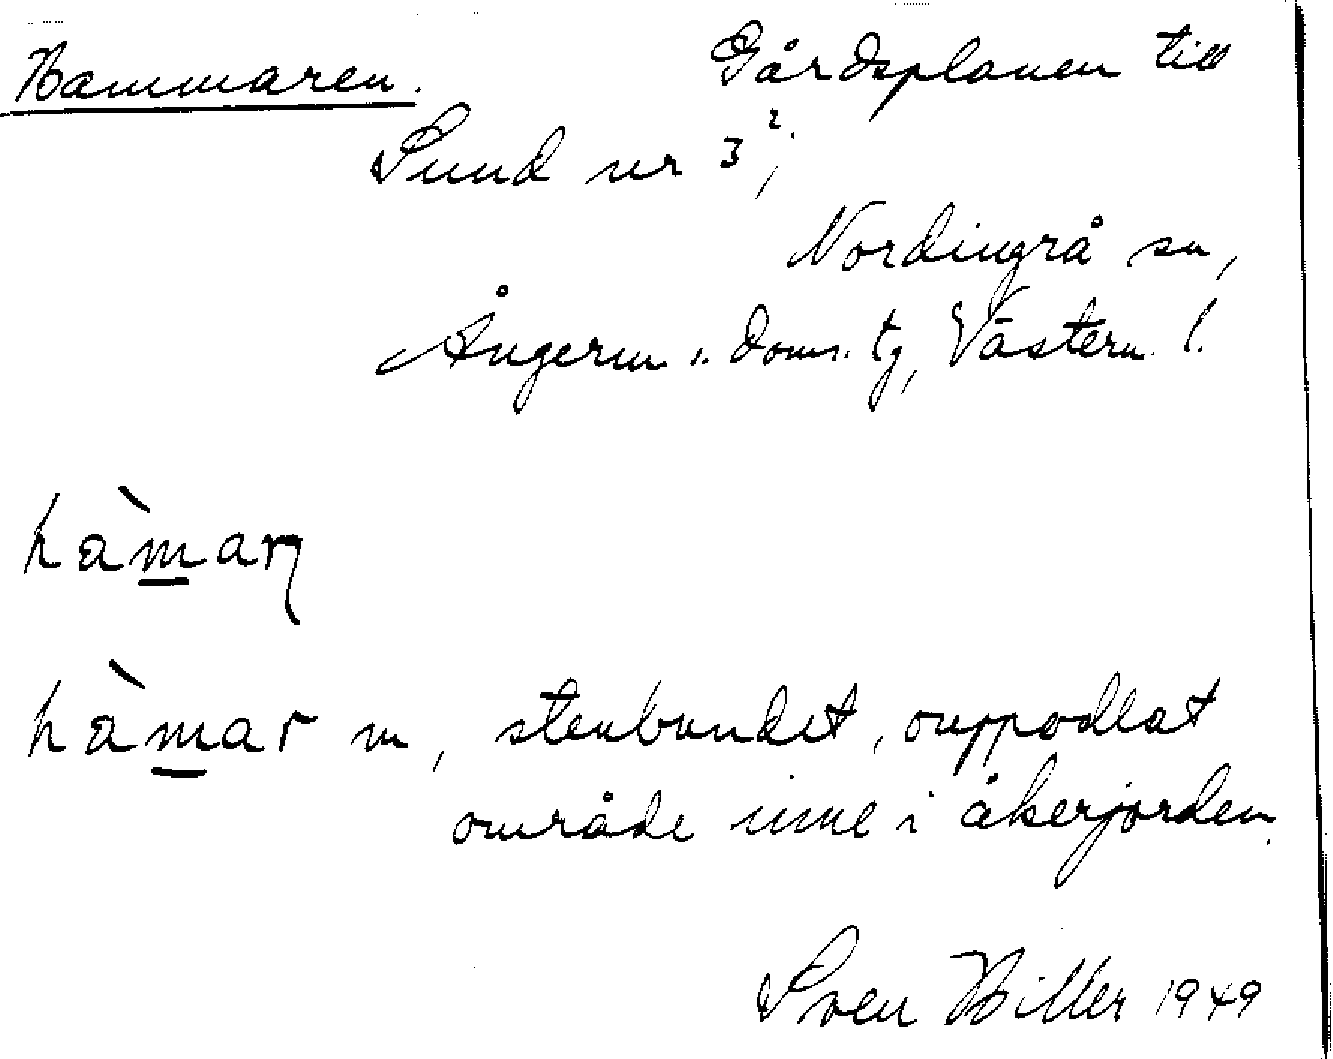 Hammaren. Gårdsplanen till
Sund nr 3²,
Nordingrå sn,
Ångerm:s doms. tg, Västern. l.
hàm̲aɳ
hàm̲ar m, stenbundet, ouppodlat
område inne i åkerjorden.
Sven Hiller 1949